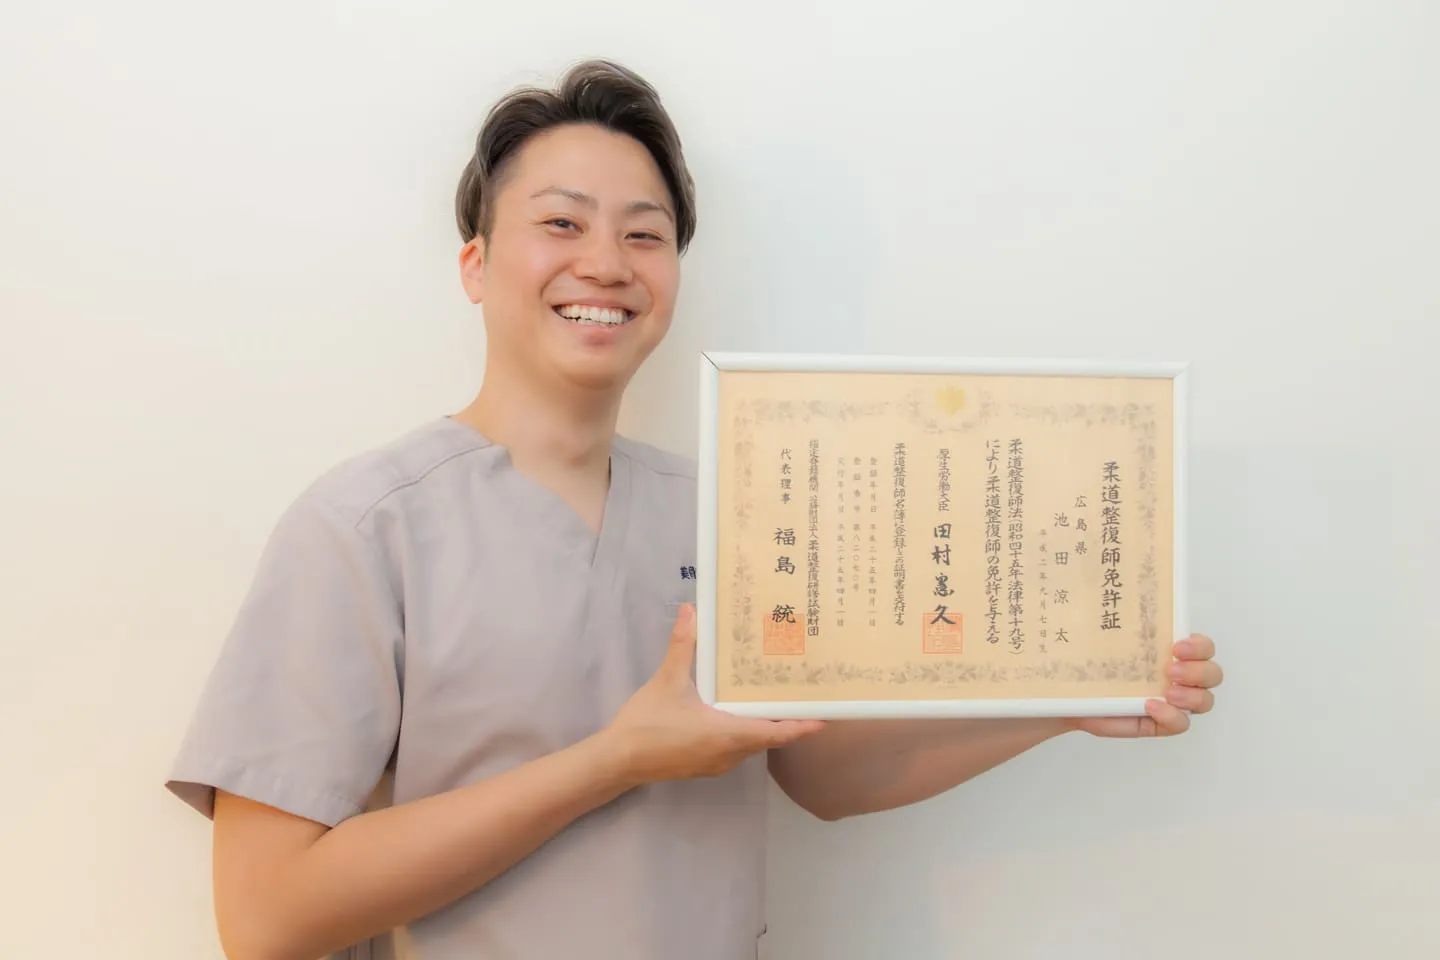 柔道整復師免許証
広島県
池田涼太
平成二年九月七日生
柔道整復師法(昭和四十五年法律第十九号)
により柔道整復師の免許を与える
厚生労働大臣 田村憲久
柔道整復師名簿に登録しこの証明書を交付する
登録年月日 平成二十五年四月一日
登録番号 第八二〇七〇号
交付年月日 平成二十五年四月一日
指定登録機関 公益財団法人柔道整復研修試験財団
代表理事 福島 統
美骨